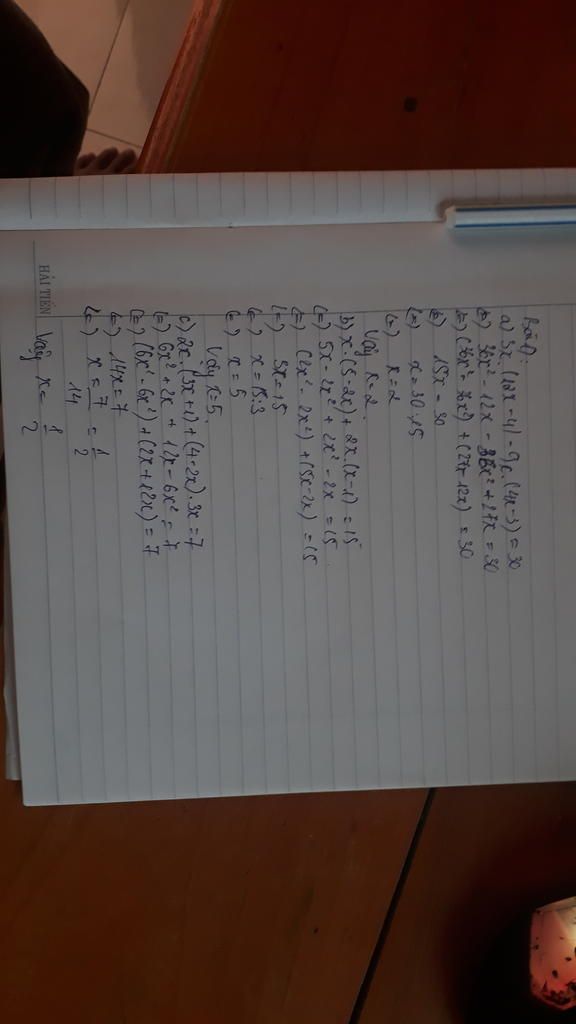 Bài 1:
a) 3x (12x - 4) - 9x (4x - 3) = 30
(=) 36x² - 12x - 36x² + 27x = 30
(=) (36x² - 36x²) + (27x - 12x) = 30
(=) 15x = 30
(=) x = 30 : 15
(=) x = 2
Vậy x = 2.
b) x. (5 - 2x) + 2x. (x - 1) = 15
(=) 5x - 2x² + 2x² - 2x = 15
(=) (2x² - 2x²) + (5x - 2x) = 15
(=) 3x = 15
(=) x = 15 : 3
(=) x = 5
Vậy x = 5.
c) 2x. (3x + 1) + (4 - 2x). 3x = 7
(=) 6x² + 2x + 12x - 6x² = 7
(=) (6x² - 6x²) + (2x + 12x) = 7
(=) 14x = 7
(=) x = 7/14 = 1/2
Vậy x = 1/2
HẢI TIẾN